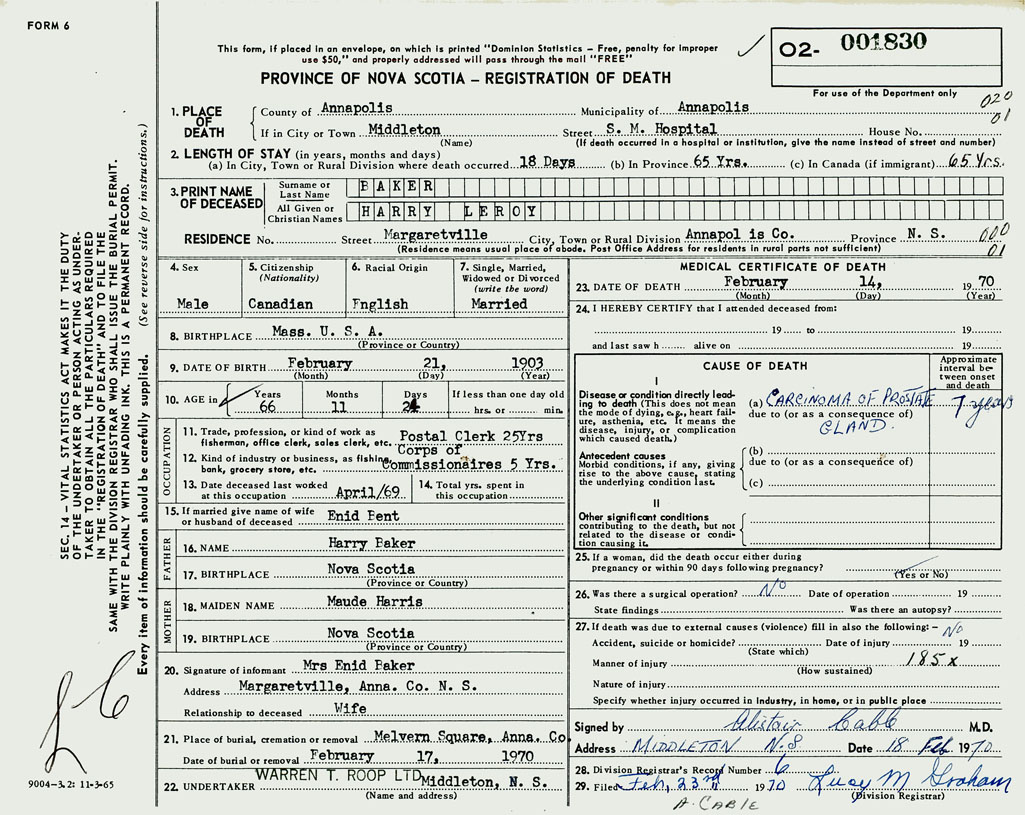 FORM 6
This form, if placed in an envelope, on which is printed "Dominion Statistics – Free, penalty for improper
use $50," and properly addressed will pass through the mail "FREE"
PROVINCE OF NOVA SCOTIA – REGISTRATION OF DEATH
02- 001830
For use of the Department only
020
01
SEC. 14 – VITAL STATISTICS ACT MAKES IT THE DUTY
OF THE UNDERTAKER OR PERSON ACTING AS UNDER-
TAKER TO OBTAIN ALL THE PARTICULARS REQUIRED
IN THE "REGISTRATION OF DEATH" AND TO FILE THE
SAME WITH THE DIVISION REGISTRAR WHO SHALL ISSUE THE BURIAL PERMIT.
WRITE PLAINLY WITH UNFADING INK. THIS IS A PERMANENT RECORD.
Every item of information should be carefully supplied. (See reverse side for instructions.)
9004-3.2: 11-3-65
1. PLACE OF DEATH
County of Annapolis Municipality of Annapolis
If in City or Town Middleton Street S. M. Hospital House No.
(Name) (If death occurred in a hospital or institution, give the name instead of street and number)
2. LENGTH OF STAY (in years, months and days)
(a) In City, Town or Rural Division where death occurred 18 Days (b) In Province 65 Yrs. (c) In Canada (if immigrant) 65 Yrs.
3. PRINT NAME OF DECEASED
Surname or Last Name BAKER
All Given or Christian Names HARRY LEROY
RESIDENCE No. Street Margaretville City, Town or Rural Division Annapol is Co. Province N. S.
(Residence means usual place of abode. Post Office Address for residents in rural parts not sufficient)
000
01
4. Sex
Male
5. Citizenship
(Nationality)
Canadian
6. Racial Origin
Fnglish
7. Single, Married,
Widowed or Divorced
(write the word)
Married
8. BIRTHPLACE Mass. U. S. A.
(Province or Country)
9. DATE OF BIRTH February 21, 1903
(Month) (Day) (Year)
10. AGE in
Years 66
Months 11
Days
If less than one day old
hrs. or min.
OCCUPATION
11. Trade, profession, or kind of work as
fisherman, office clerk, sales clerk, etc. Postal Clerk 25Yrs
12. Kind of industry or business, as fishing,
bank, grocery store, etc. Corps of
Commissionaires 5 Yrs.
13. Date deceased last worked
at this occupation April/69
14. Total yrs. spent in
this occupation
15. If married give name of wife
or husband of deceased Enid Bent
FATHER
16. NAME Harry Baker
17. BIRTHPLACE Nova Scotia
(Province or Country)
MOTHER
18. MAIDEN NAME Maude Harris
19. BIRTHPLACE Nova Scotia
(Province or Country)
20. Signature of informant Mrs Enid Baker
Address Margaretville, Anna. Co. N. S.
Relationship to deceased Wife
21. Place of burial, cremation or removal Melvern Square, Anna. Co
Date of burial or removal February 17, 1970
22. UNDERTAKER WARREN T. ROOP LTD Middleton, N. S.
(Name and address)
MEDICAL CERTIFICATE OF DEATH
23. DATE OF DEATH February 14, 19 70
(Month) (Day) (Year)
24. I HEREBY CERTIFY that I attended deceased from:
19 to 19
and last saw h alive on 19
CAUSE OF DEATH
Approximate
interval be-
tween onset
and death
I
Disease or condition directly lead-
ing to death (This does not mean
the mode of dying, e.g., heart fail-
ure, asthenia, etc. It means the
disease, injury, or complication
which caused death.)
(a) CARCINOMA OF PROSTATE 7 years
due to (or as a consequence of)
GLAND.
Antecedent causes
Morbid conditions, if any, giving
rise to the above cause, stating
the underlying condition last.
(b)
due to (or as a consequence of)
(c)
II
Other significant conditions
contributing to the death, but not
related to the disease or condi-
tion causing it.
25. If a woman, did the death occur either during
pregnancy or within 90 days following pregnancy?
(Yes or No)
26. Was there a surgical operation? No Date of operation 19
State findings Was there an autopsy?
27. If death was due to external causes (violence) fill in also the following: – No
Accident, suicide or homicide? Date of injury 19
(State which)
Manner of injury 185x
(How sustained)
Nature of injury
Specify whether injury occurred in industry, in home, or in public place
Signed by Alistair Cable M.D.
Address MIDDLETON N.S Date 18 Feb 1970
28. Division Registrar's Record Number 6
29. Filed Feb, 23rd 1970 Lucy M Graham
(Division Registrar)
A. CABLE